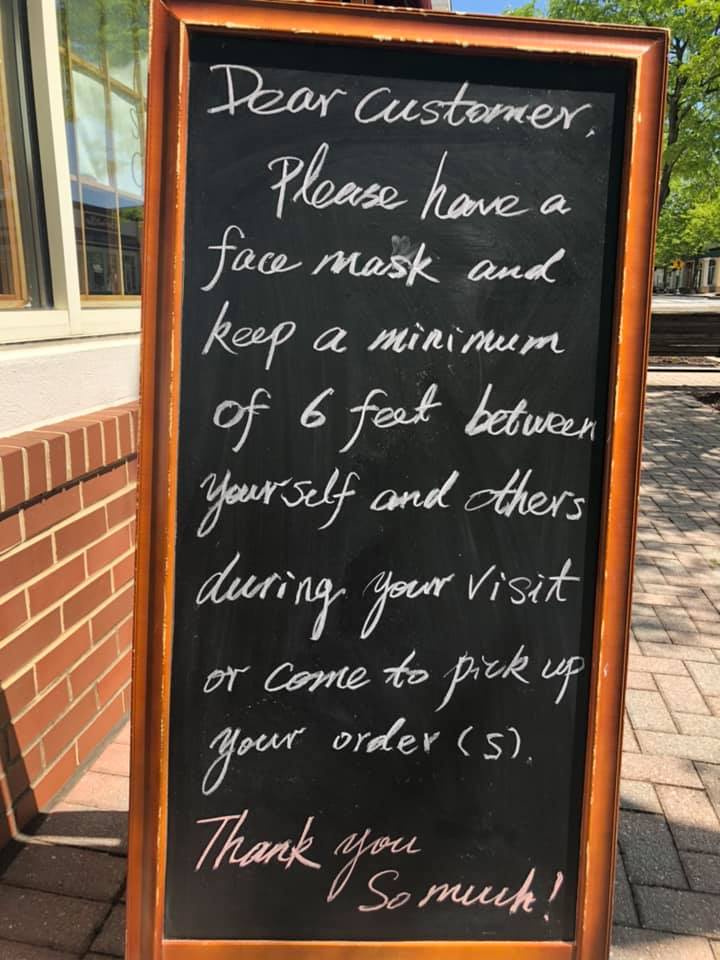 Dear Customer,
Please have a
face mask and
keep a minimum
of 6 feet between
yourself and others
during your visit
or come to pick up
your order (s).
Thank you
So much!